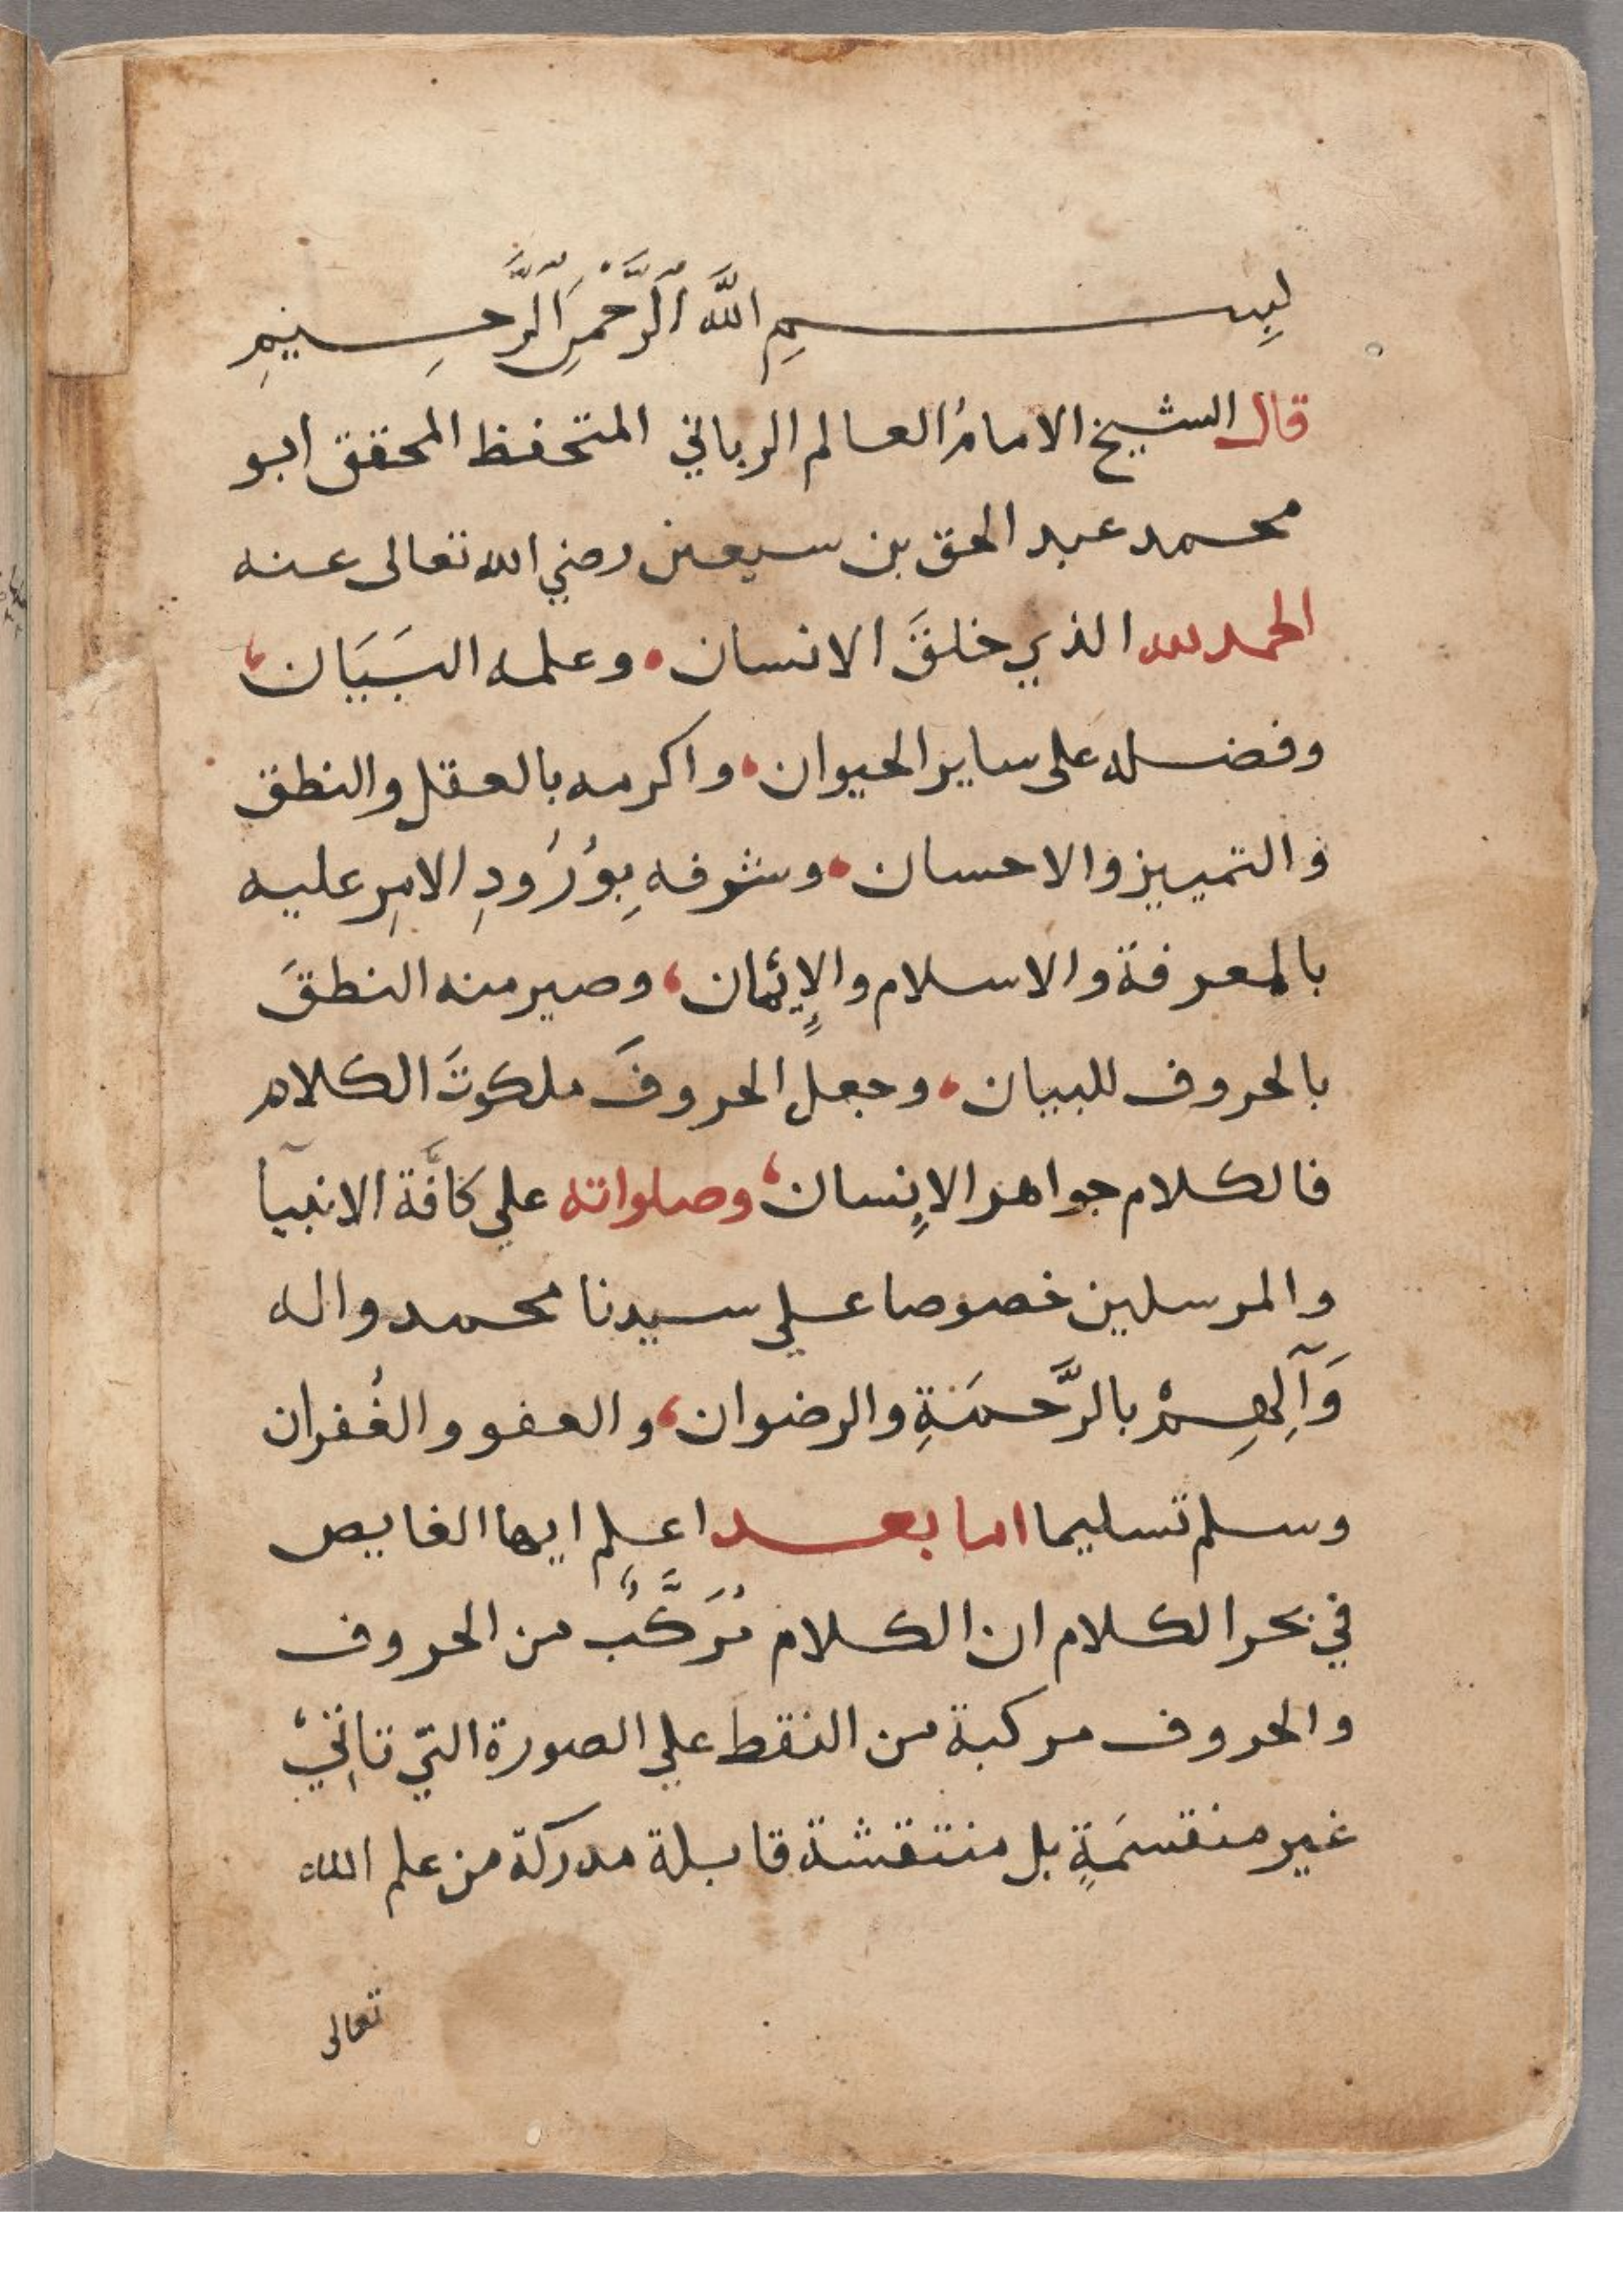 بِسمِ اللَّه الرَّحْمَنِ الرَّحِيمِ
قال الشيخ الامامُ العالم الرباني المتحفظ المحقق ابو
محمد عبد الحق بن سبعين رضي الله تعالى عنه
الحمد لله الذي خلقَ الانسان • وعلمه البَيَان ،
وفضله على ساير الحيوان ، واكرمه بالعقل والنطق
والتمييز والاحسان • وشرفه بِوُرُودِ الامِر عليه
بالمعرفة والاسلام والإئمان ، وصير منه النطقَ
بالحروف للبيان ، وجعل الحروفَ ملكوتَ الكلام
فالكلام جواهر الإنسان ، وصلواته علي كافَّة الانبيآ
والمرسلين خصوصا علي سيدنا محمد واله
وَآلِهِمْ بالرَّحمَةِ والرضوان ، والعفو والغُفران
وسلم تسليما اما بعد اعلم ايها الغايص
في بحر الكلام ان الكلام مُرَكَّبٌ من الحروف
والحروف مركبة من النقط علي الصورة التي تاتِيْ
غير منقسمَةٍ بل منتقشة قابلة مدركة من علم الله
تعالى